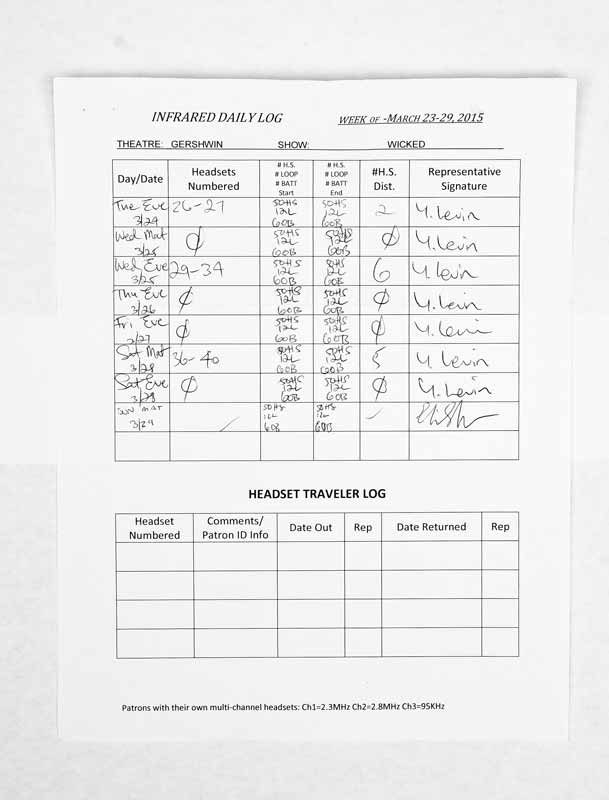 INFRARED DAILY LOG WEEK OF -MARCH 23-29, 2015
THEATRE: GERSHWIN SHOW: WICKED
Day/Date Headsets Numbered # H.S. # LOOP # BATT Start # H.S. # LOOP # BATT End #H.S. Dist. Representative Signature
Tue Eve 3/24 26-27 50HS 12L 60B 50HS 12L 60B 2 Y. Levin
Wed Mat 3/25 Ø 50HS 12L 60B 50HS 12L 60B Ø Y. Levin
Wed Eve 3/25 29-34 50HS 12L 60B 50HS 12L 60B 6 Y. Levin
Thu Eve 3/26 Ø 50HS 12L 60B 50HS 12L 60B Ø Y. Levin
Fri Eve 3/27 Ø 50HS 12L 60B 50HS 12L 60B Ø Y. Levin
Sat Mat 3/28 36-40 50HS 12L 60B 50HS 12L 60B 5 Y. Levin
Sat Eve 3/28 Ø 50HS 12L 60B 50HS 12L 60B Ø Y. Levin
SUN MAT 3/29 / 50HS 12L 60B 50HS 12L 60B /
HEADSET TRAVELER LOG
Headset Numbered Comments/ Patron ID Info Date Out Rep Date Returned Rep
Patrons with their own multi-channel headsets: Ch1=2.3MHz Ch2=2.8MHz Ch3=95KHz